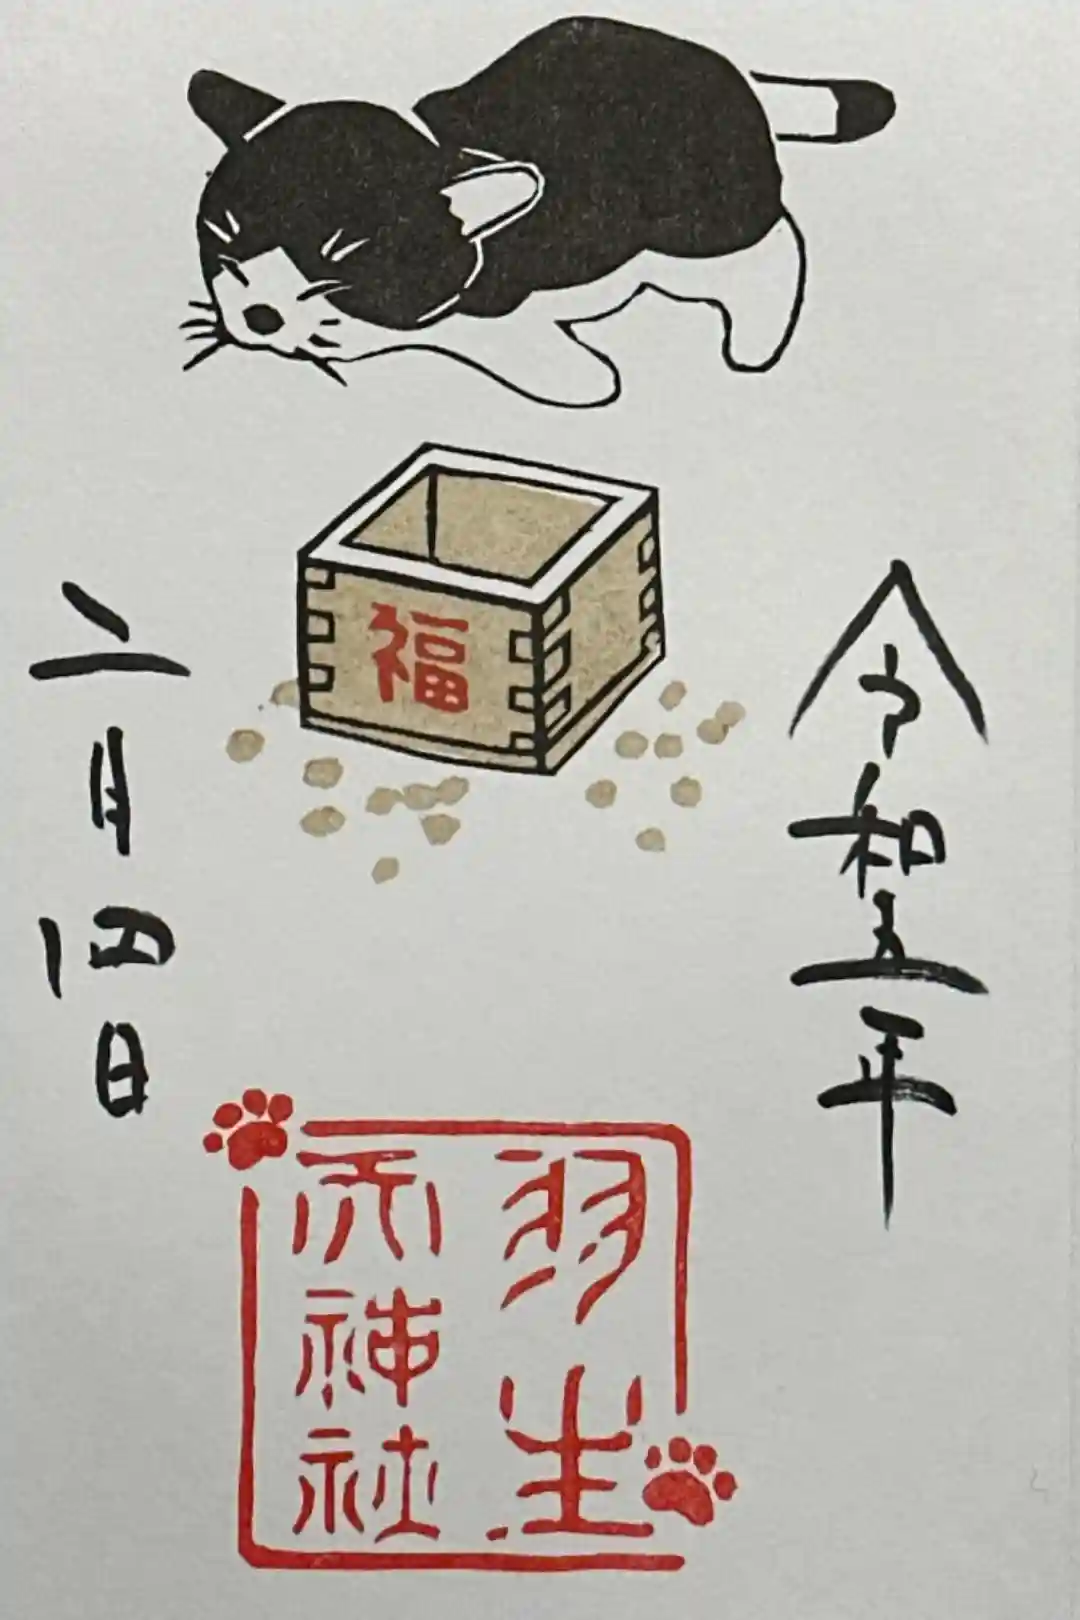 福
令和五年
二月四日
羽生
天神社